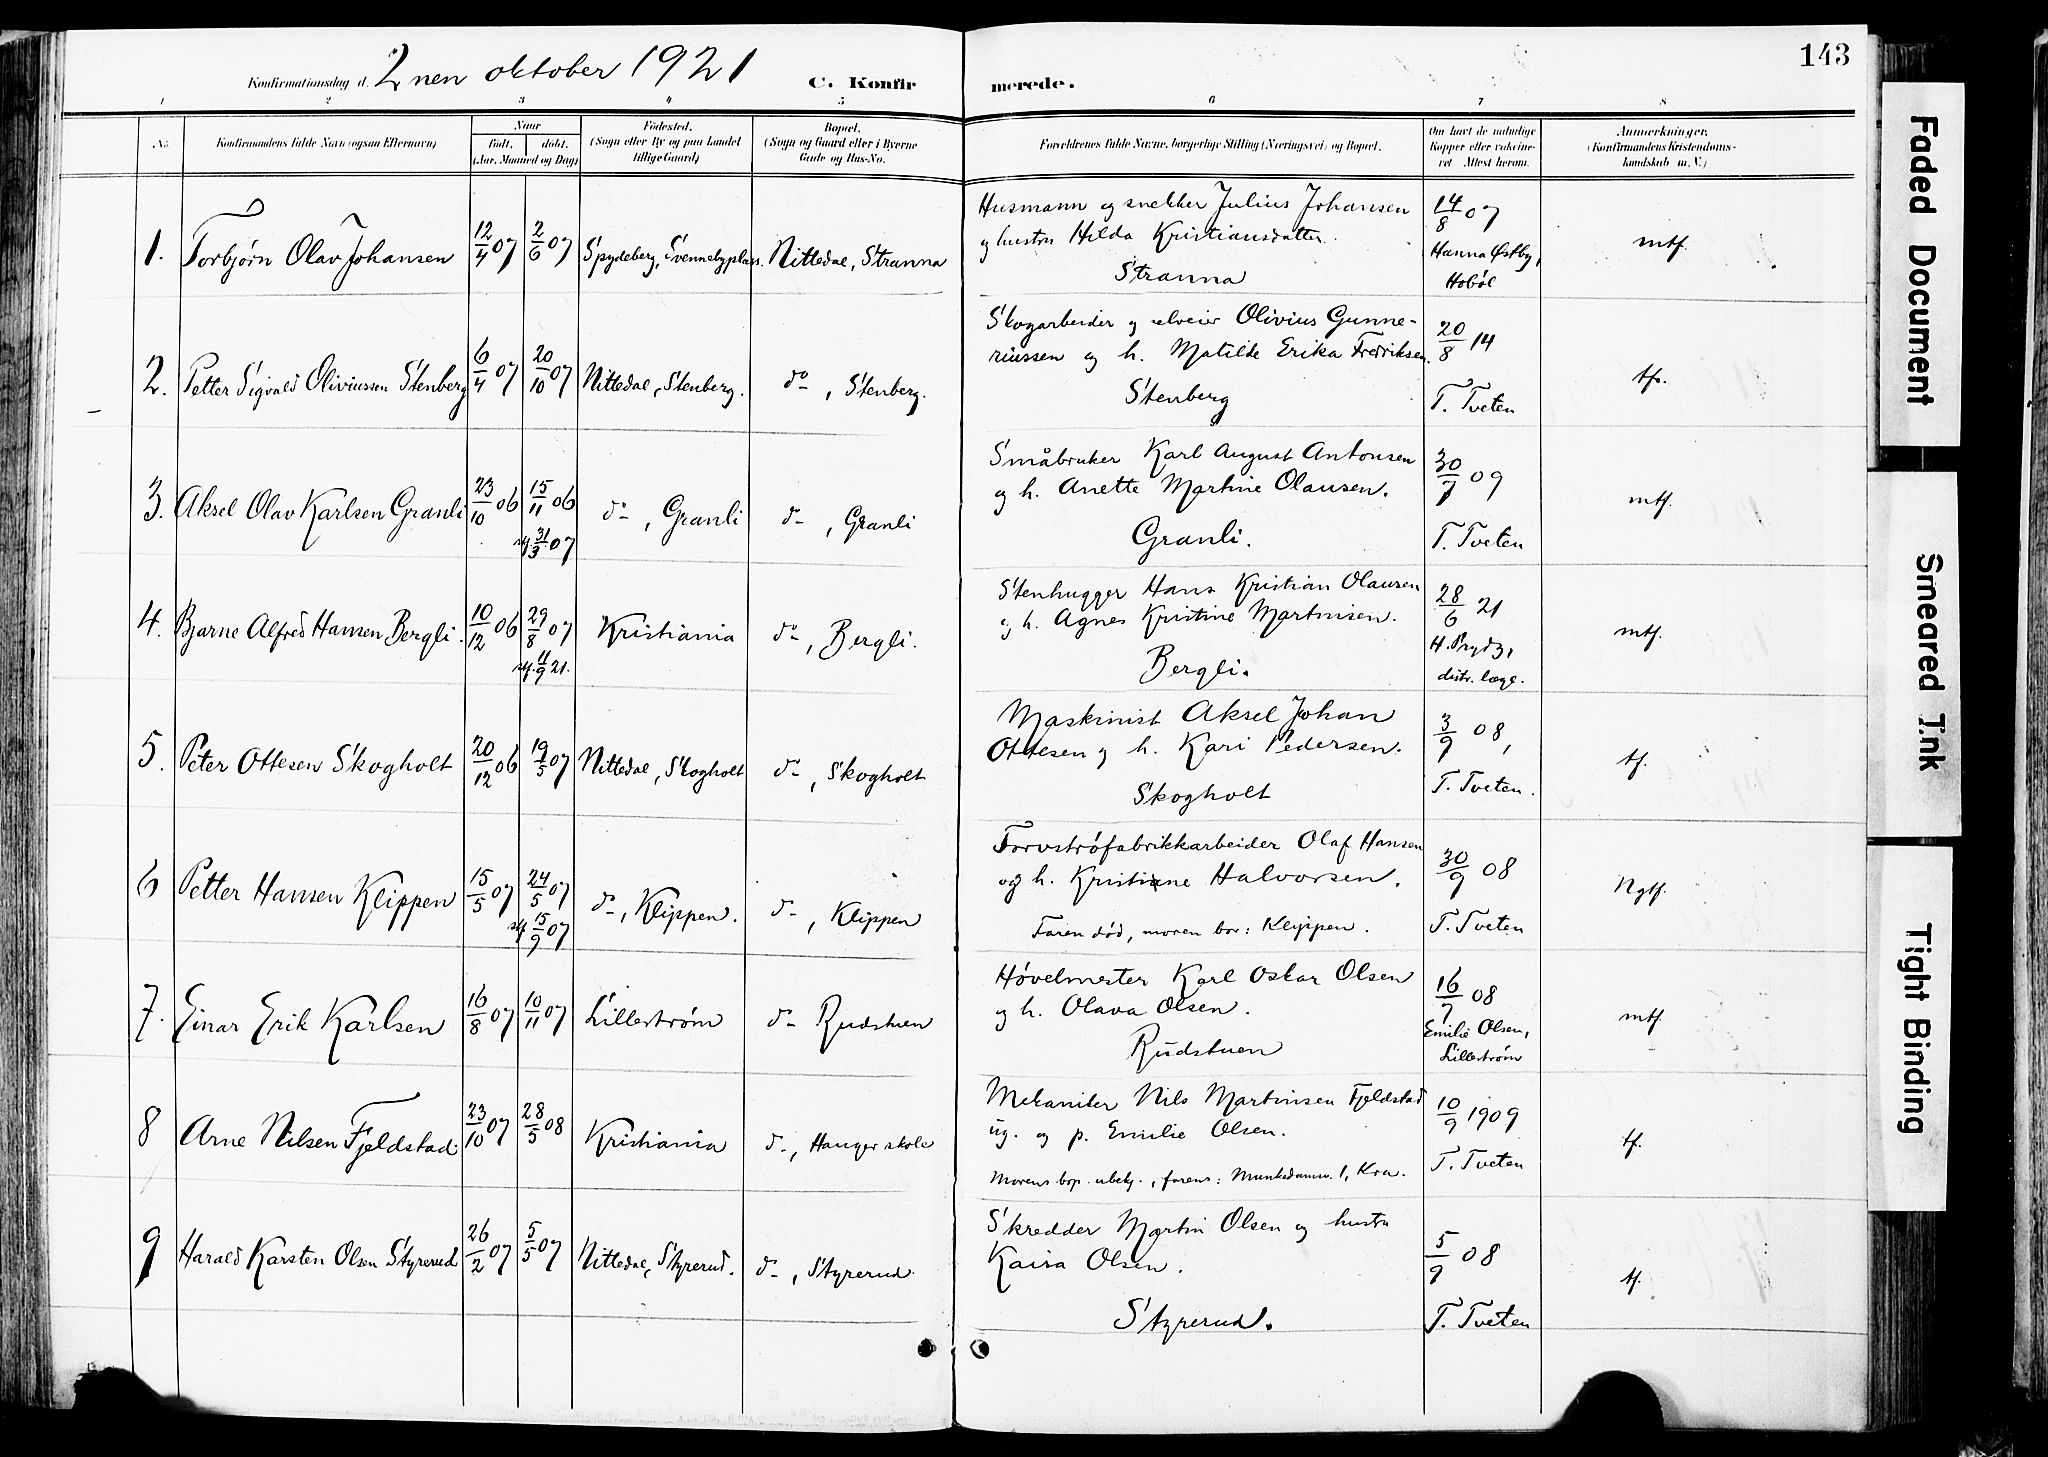 143
Konfirmationsdag d. 2nen oktober 1921
C. Konfirmerede.
1 2 3 4 5 6 7 8
No.
Konfirmandens fulde Navn (ogsaa Efternavn)
Naar
Født. døbt.
(Aar, Maaned og Dag)
Fødested.
(Sogn eller By og paa Landet
tillige Gaard)
Bopæl.
(Sogn og Gaard eller i Byerne
Gade og Hus-No.
Forældrenes fulde Navne, borgerlige Stilling (Næringsvei) og Bopæl.
Om havt de naturlige
Kopper eller vakcine-
ret Attest herom.
Anmærkninger.
(Konfirmandens Kristendoms-
kundskab m. V.)
1. Torbjörn Olav Johansen 12/4 07 2/6 07 Spydeberg, Svennebyplass. Nittedal, Stranna
Husmann og snekker Julius Johansen
og hustru Hilda Kristiansdatter.
Stranna
14/8 07
Hanna Østby,
Hobøl
mtf.
2. Petter Sigvald Oliviussen Stenberg 6/4 07 20/10 07 Nittedal, Stenberg. do , Stenberg.
Skogarbeider og selveier Olivius Gunne-
riussen og h. Matilde Erika Fredriksen.
Stenberg
20/8 14
T. Tveten
tfr.
3. Aksel Olav Karlsen Granli 23/10 06 15/11 06 do , Granli do , Granli
stf. 31/3 07
Småbruker Karl August Antonsen
og h. Anette Martine Olausen.
Granli.
30/7 09
T. Tveten
mtf.
4. Bjarne Alfred Hansen Bergli. 10/12 06 29/8 07 Kristiania do , Bergli.
stf. 11/9 21.
Stenhugger Hans Kristian Olausen
og h. Agnes Kristine Martinsen.
Bergli.
28/6 21
H. Prydz,
distr. læge.
mtf.
5. Peter Ottesen Skogholt 20/12 06 19/5 07 Nittedal, Skogholt do , Skogholt
Maskinist Aksel Johan
Ottesen og h. Kari Pedersen.
Skogholt
3/9 08,
T. Tveten.
tf.
6 Petter Hansen Klippen 15/5 07 24/5 07 do , Klippen. do , Klippen
stf 15/9 07
Torvströfabrikkarbeider Olaf Hansen
og h. Kristine Halvorsen.
Faren död, moren bor: Klippen.
30/9 08
T. Tveten
Ngtf.
7. Einar Erik Karlsen 16/8 07 10/11 07 Lillestrøm do Rudstuen
Hövelmester Karl Oskar Olsen
og h. Olava Olsen.
Rudstuen
16/7 08
Emilie Olsen,
Lillestrøm
mtf.
8 Arne Nilsen Fjeldstad. 23/10 07 28/5 08 Kristiania do , Hauger skole
Mekaniker Nils Martinsen Fjeldstad
ug. og p. Emilie Olsen.
Morens bop. ubekj., farens: Munkedamsv. 1, Kra.
10/9 1909
T. Tveten
tf.
9 Harald Karsten Olsen Styrerud 26/2 07 5/5 07 Nittedal, Styrerud. do , Styrerud.
Skredder Martin Olsen og hustru
Kaisa Olsen.
Styrerud.
5/9 08
T. Tveten
tf.
Faded Document
Smeared Ink
Tight Binding